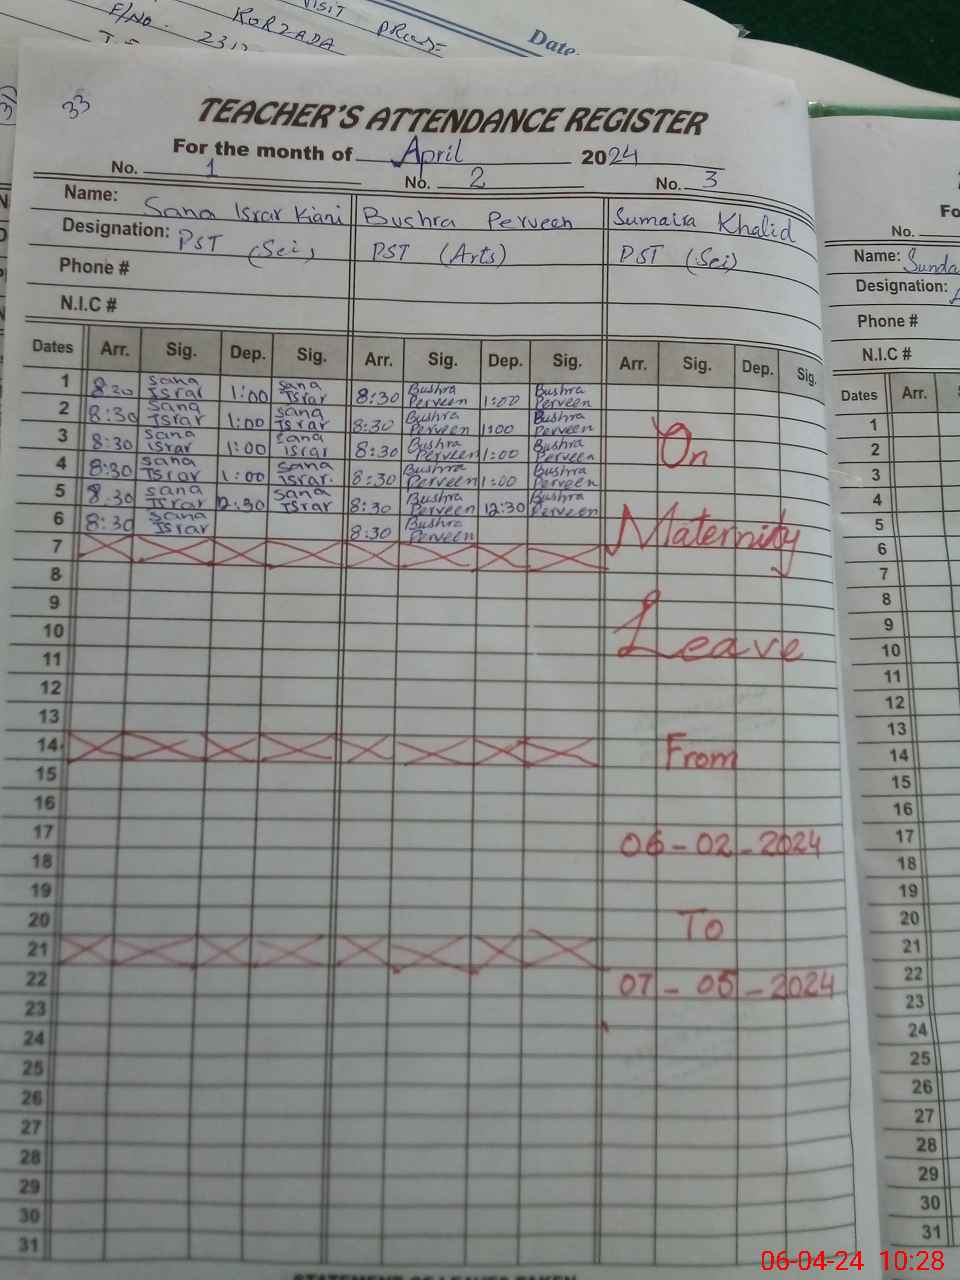 E/No.
KORZADA
VISIT
Date.
33
TEACHER'S ATTENDANCE REGISTER
For the month of April 2024
No. 1 No. 2 No. 3
Name: Sana Israr Kiani Bushra Perveen Sumaira Khalid
Designation: PST (Sci) PST (Arts) PST (Sci)
Phone #
N.I.C #
Dates Arr. Sig. Dep. Sig. Arr. Sig. Dep. Sig. Arr. Sig. Dep. Sig.
1 8:30 Sana Israr 1:00 Sana Israr 8:30 Bushra Perveen 1:00 Bushra Perveen
2 8:30 Sana Israr 1:00 Sana Israr 8:30 Bushra Perveen 1:00 Bushra Perveen
3 8:30 Sana Israr 1:00 Sana Israr 8:30 Bushra Perveen 1:00 Bushra Perveen
4 8:30 Sana Israr 1:00 Sana Israr. 8:30 Bushra Perveen 1:00 Bushra Perveen
5 8.30 Sana Israr 12:30 Sana Israr 8:30 Bushra Perveen 12:30 Bushra Perveen
6 8:30 Sana Israr 8:30 Bushra Perveen
7
8
9
10
11
12
13
14
15
16
17
18
19
20
21
22
23
24
25
26
27
28
29
30
31
On
Maternity
Leave
From
06-02-2024
To
07-05-2024
STATEMENT OF LEAVES TAKEN
No.
Name: Sunda
Designation:
Phone #
N.I.C #
Dates Arr.
1
2
3
4
5
6
7
8
9
10
11
12
13
14
15
16
17
18
19
20
21
22
23
24
25
26
27
28
29
30
31
06-04-24 10:28